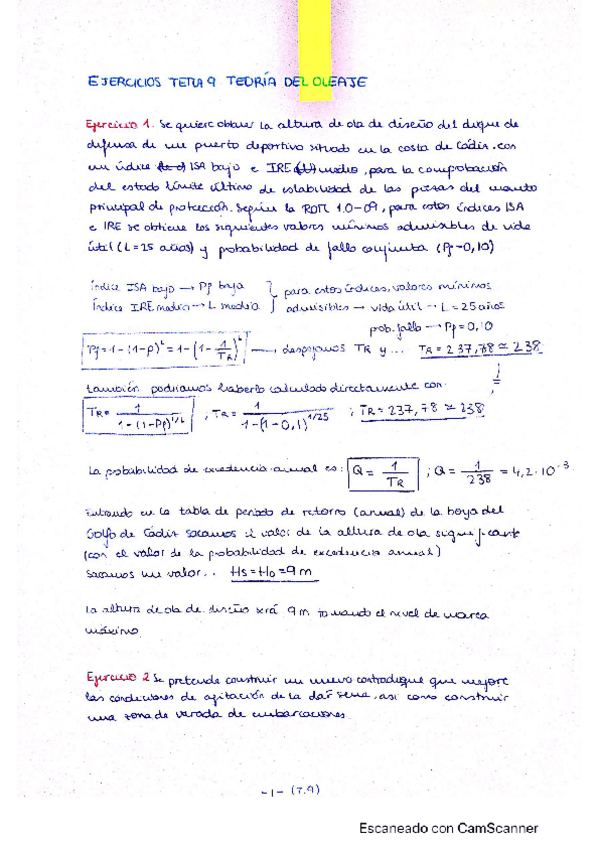 EJERCICIOS TEMA 9 TEORÍA DEL OLEAJE
Ejercicio 1. Se quiere obtener la altura de ola de diseño del dique de
defensa de un puerto deportivo situado en la costa de Cádiz, con
un índice ISA bajo e IRE medio, para la comprobación
del estado límite último de estabilidad de las piezas del manto
principal de protección. Según la ROM 1.0-09, para estos índices ISA
e IRE se obtiene los siguientes valores mínimos admisibles de vida
útil (L=25 años) y probabilidad de fallo conjunta (Pf=0,10)
Índice ISA bajo → Pf baja } para estos índices, valores mínimos
Índice IRE medio → L media } admisibles → vida útil → L=25 años
prob. fallo → Pf=0,10
Pf = 1-(1-p)^L = 1-(1-1/TR)^L → despejamos TR y ... TR = 237,78 ≃ 238
También podríamos haberlo calculado directamente con:
TR = 1/(1-(1-Pf)^1/L) ; TR = 1/(1-(1-0,1)^1/25) ; TR = 237,78 ≃ 238
La probabilidad de excedencia anual es: Q = 1/TR ; Q = 1/238 = 4,2·10^-3
Entrando en la tabla de periodo de retorno (anual) de la boya del
Golfo de Cádiz sacamos el valor de la altura de ola significante
(con el valor de la probabilidad de excedencia anual)
Sacamos un valor.. Hs=Ho=9m
La altura de ola de diseño será 9m tomando el nivel de marea
máximo.
Ejercicio 2 Se pretende construir un nuevo contradique que mejore
las condiciones de agitación de la dársena, así como construir
una zona de varada de embarcaciones.
-1- (T.9)
Escaneado con CamScanner